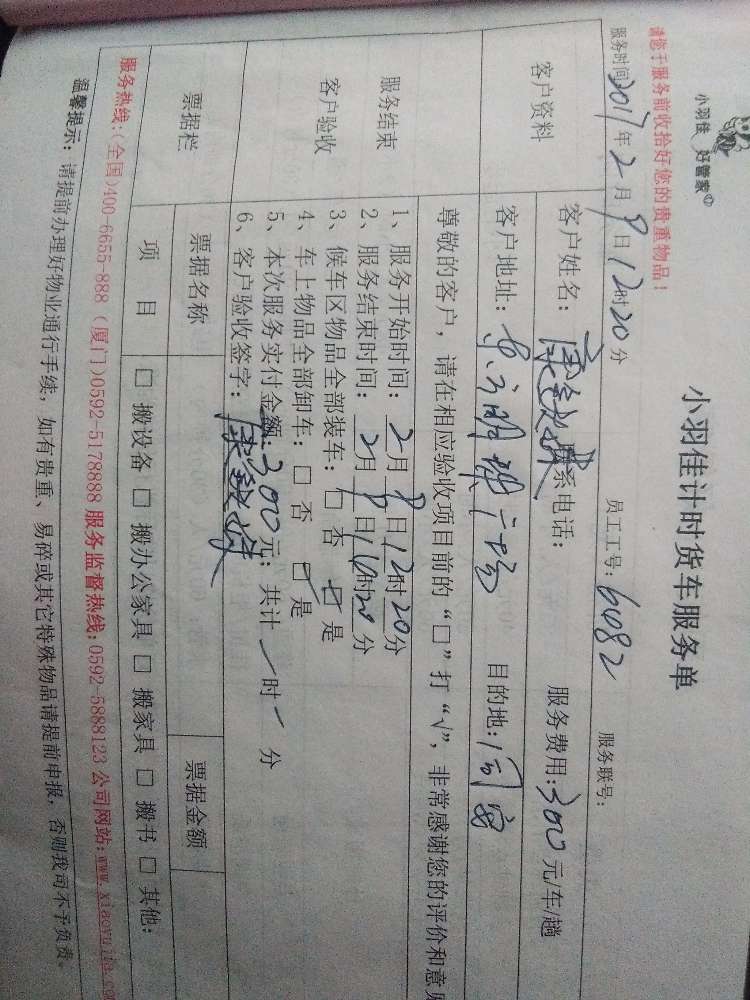 小羽佳 好管家
小羽佳计时货车服务单
请您于服务前收拾好您的贵重物品！
服务时间2017年2月9日12时20分 员工工号：6082 服务联号：
客户资料
客户姓名： 联系电话： 服务费用：300元/车/趟
客户地址：东方明珠广场 目的地：同安
尊敬的客户，请在相应验收项目前的“□”打“√”，非常感谢您的评价和意见
服务结束
客户验收
1、服务开始时间：2月9日12时20分
2、服务结束时间：2月9日16时20分
3、候车区物品全部装车：□ 否 ☑ 是
4、车上物品全部卸车：□ 否 ☑ 是
5、本次服务实付金额：300元；共计 / 时 / 分
6、客户验收签字：
票据栏 票据名称 票据金额
项 目 □ 搬设备 □ 搬办公家具 □ 搬家具 □ 搬书 □ 其他：
服务热线：（全国）400-6655-888（厦门）0592-5178888 服务监督热线：0592-5888123 公司网站：www.xiaoyujia.com
温馨提示：请提前办理好物业通行手续，如有贵重、易碎或其它特殊物品请提前申报，否则我司不予负责。